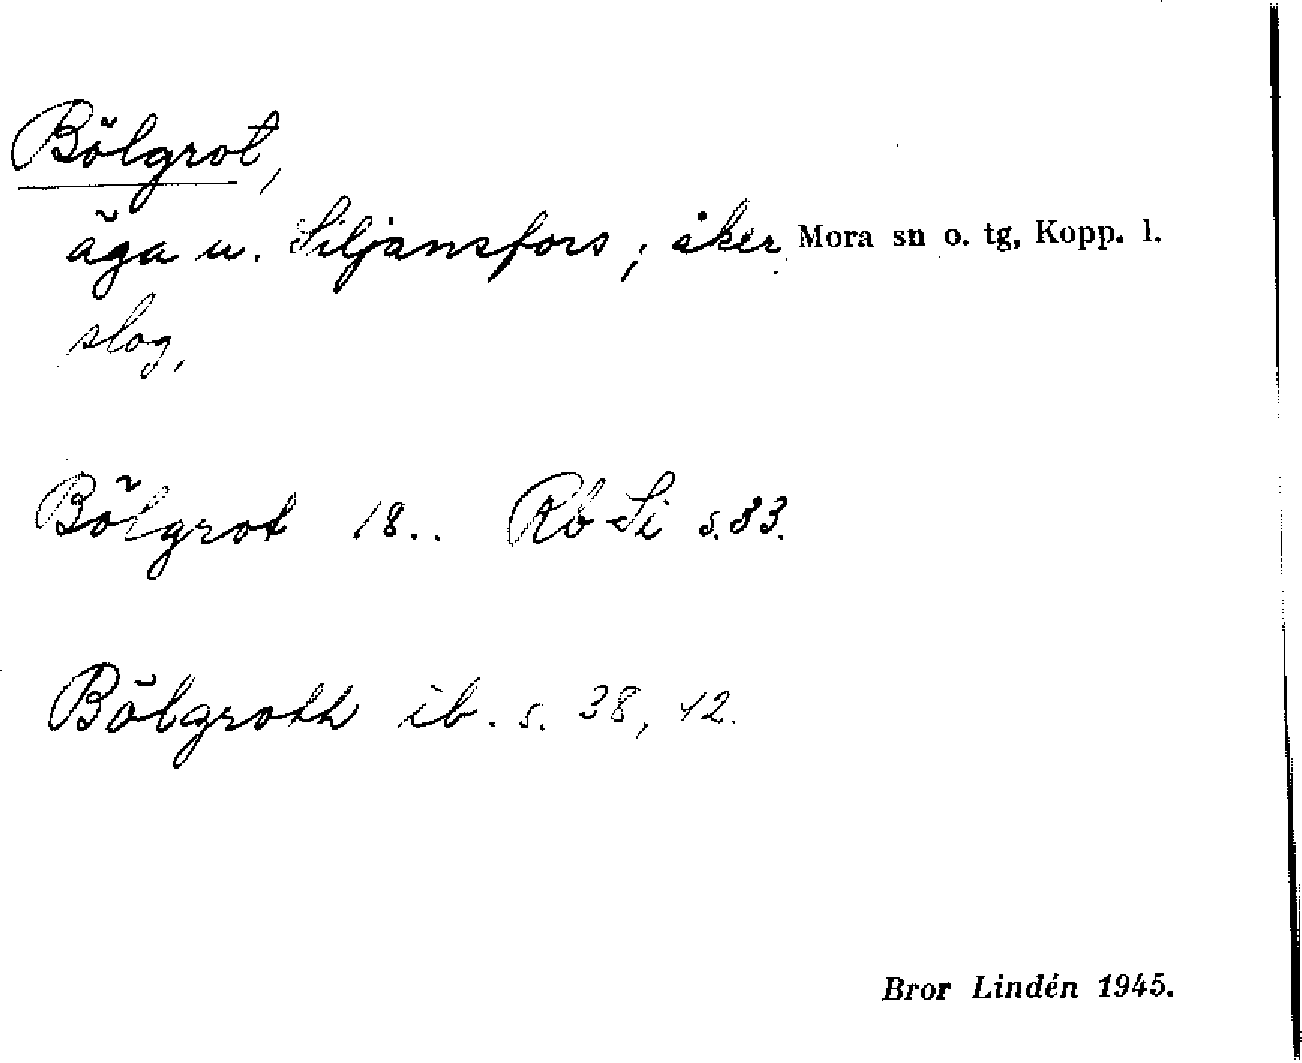 Bölgrot,
äga u. Siljansfors; åker Mora sn o. tg, Kopp. l.
slog,
Bölgrot 18.. Rb Si s. 33.
Bölgroth ib. s. 38, 42.
Bror Lindén 1945.